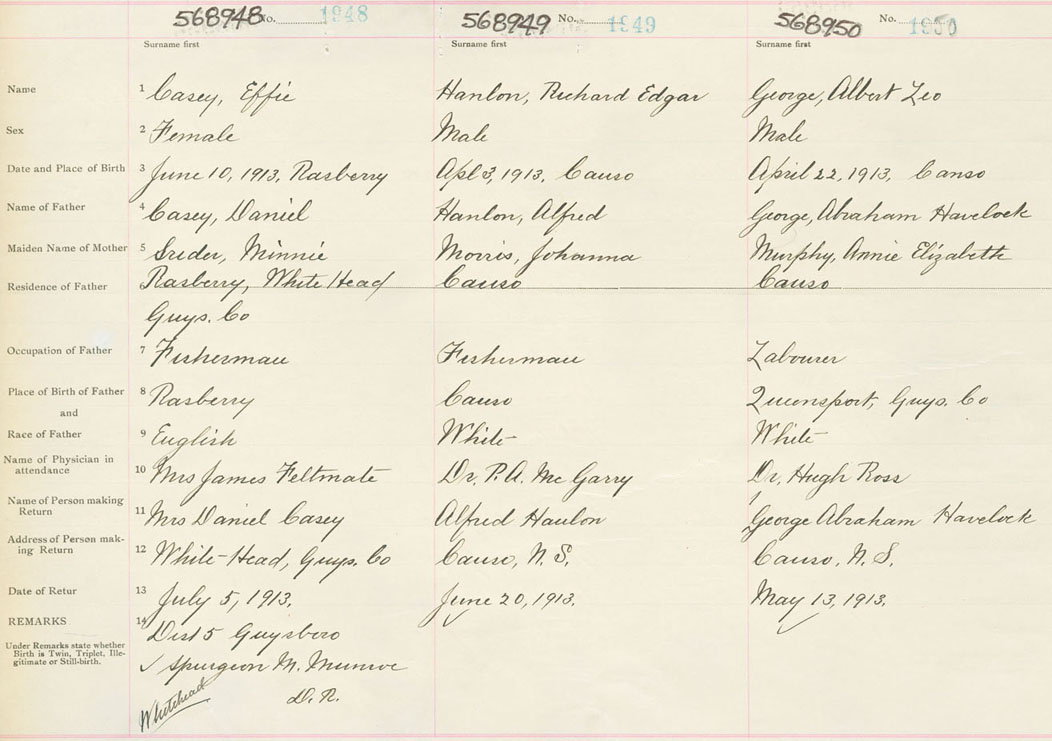 568948 No. 1948 568949 No. 1949 568950 No. 1950
Surname first Surname first Surname first
Name 1 Casey, Effie Hanlon, Richard Edgar George, Albert Leo
Sex 2 Female Male Male
Date and Place of Birth 3 June 10, 1913, Rasberry Apl 3, 1913, Canso April 22, 1913, Canso
Name of Father 4 Casey, Daniel Hanlon, Alfred George, Abraham Havelock
Maiden Name of Mother 5 Snider, Minnie Morris, Johanna Murphy, Annie Elizabeth
Residence of Father Rasberry, White Head Canso Canso
Guys. Co
Occupation of Father 7 Fisherman Fisherman Labourer
Place of Birth of Father 8 Rasberry Canso Queensport, Guys. Co
and
Race of Father 9 English White White
Name of Physician in
attendance 10 Mrs James Feltmate Dr. P. A. McGarry Dr. Hugh Ross
Name of Person making
Return 11 Mrs Daniel Casey Alfred Hanlon George Abraham Havelock
Address of Person mak-
ing Return 12 White-Head, Guys. Co Canso, N. S. Canso, N. S.
Date of Retur 13 July 5, 1913. June 20, 1913. May 13, 1913.
REMARKS 14 Dist 5 Guysboro
Under Remarks state whether
Birth is Twin, Triplet, Ille-
gitimate or Still-birth.
✓ Spurgeon M. Munroe
D. R.
Whitehead